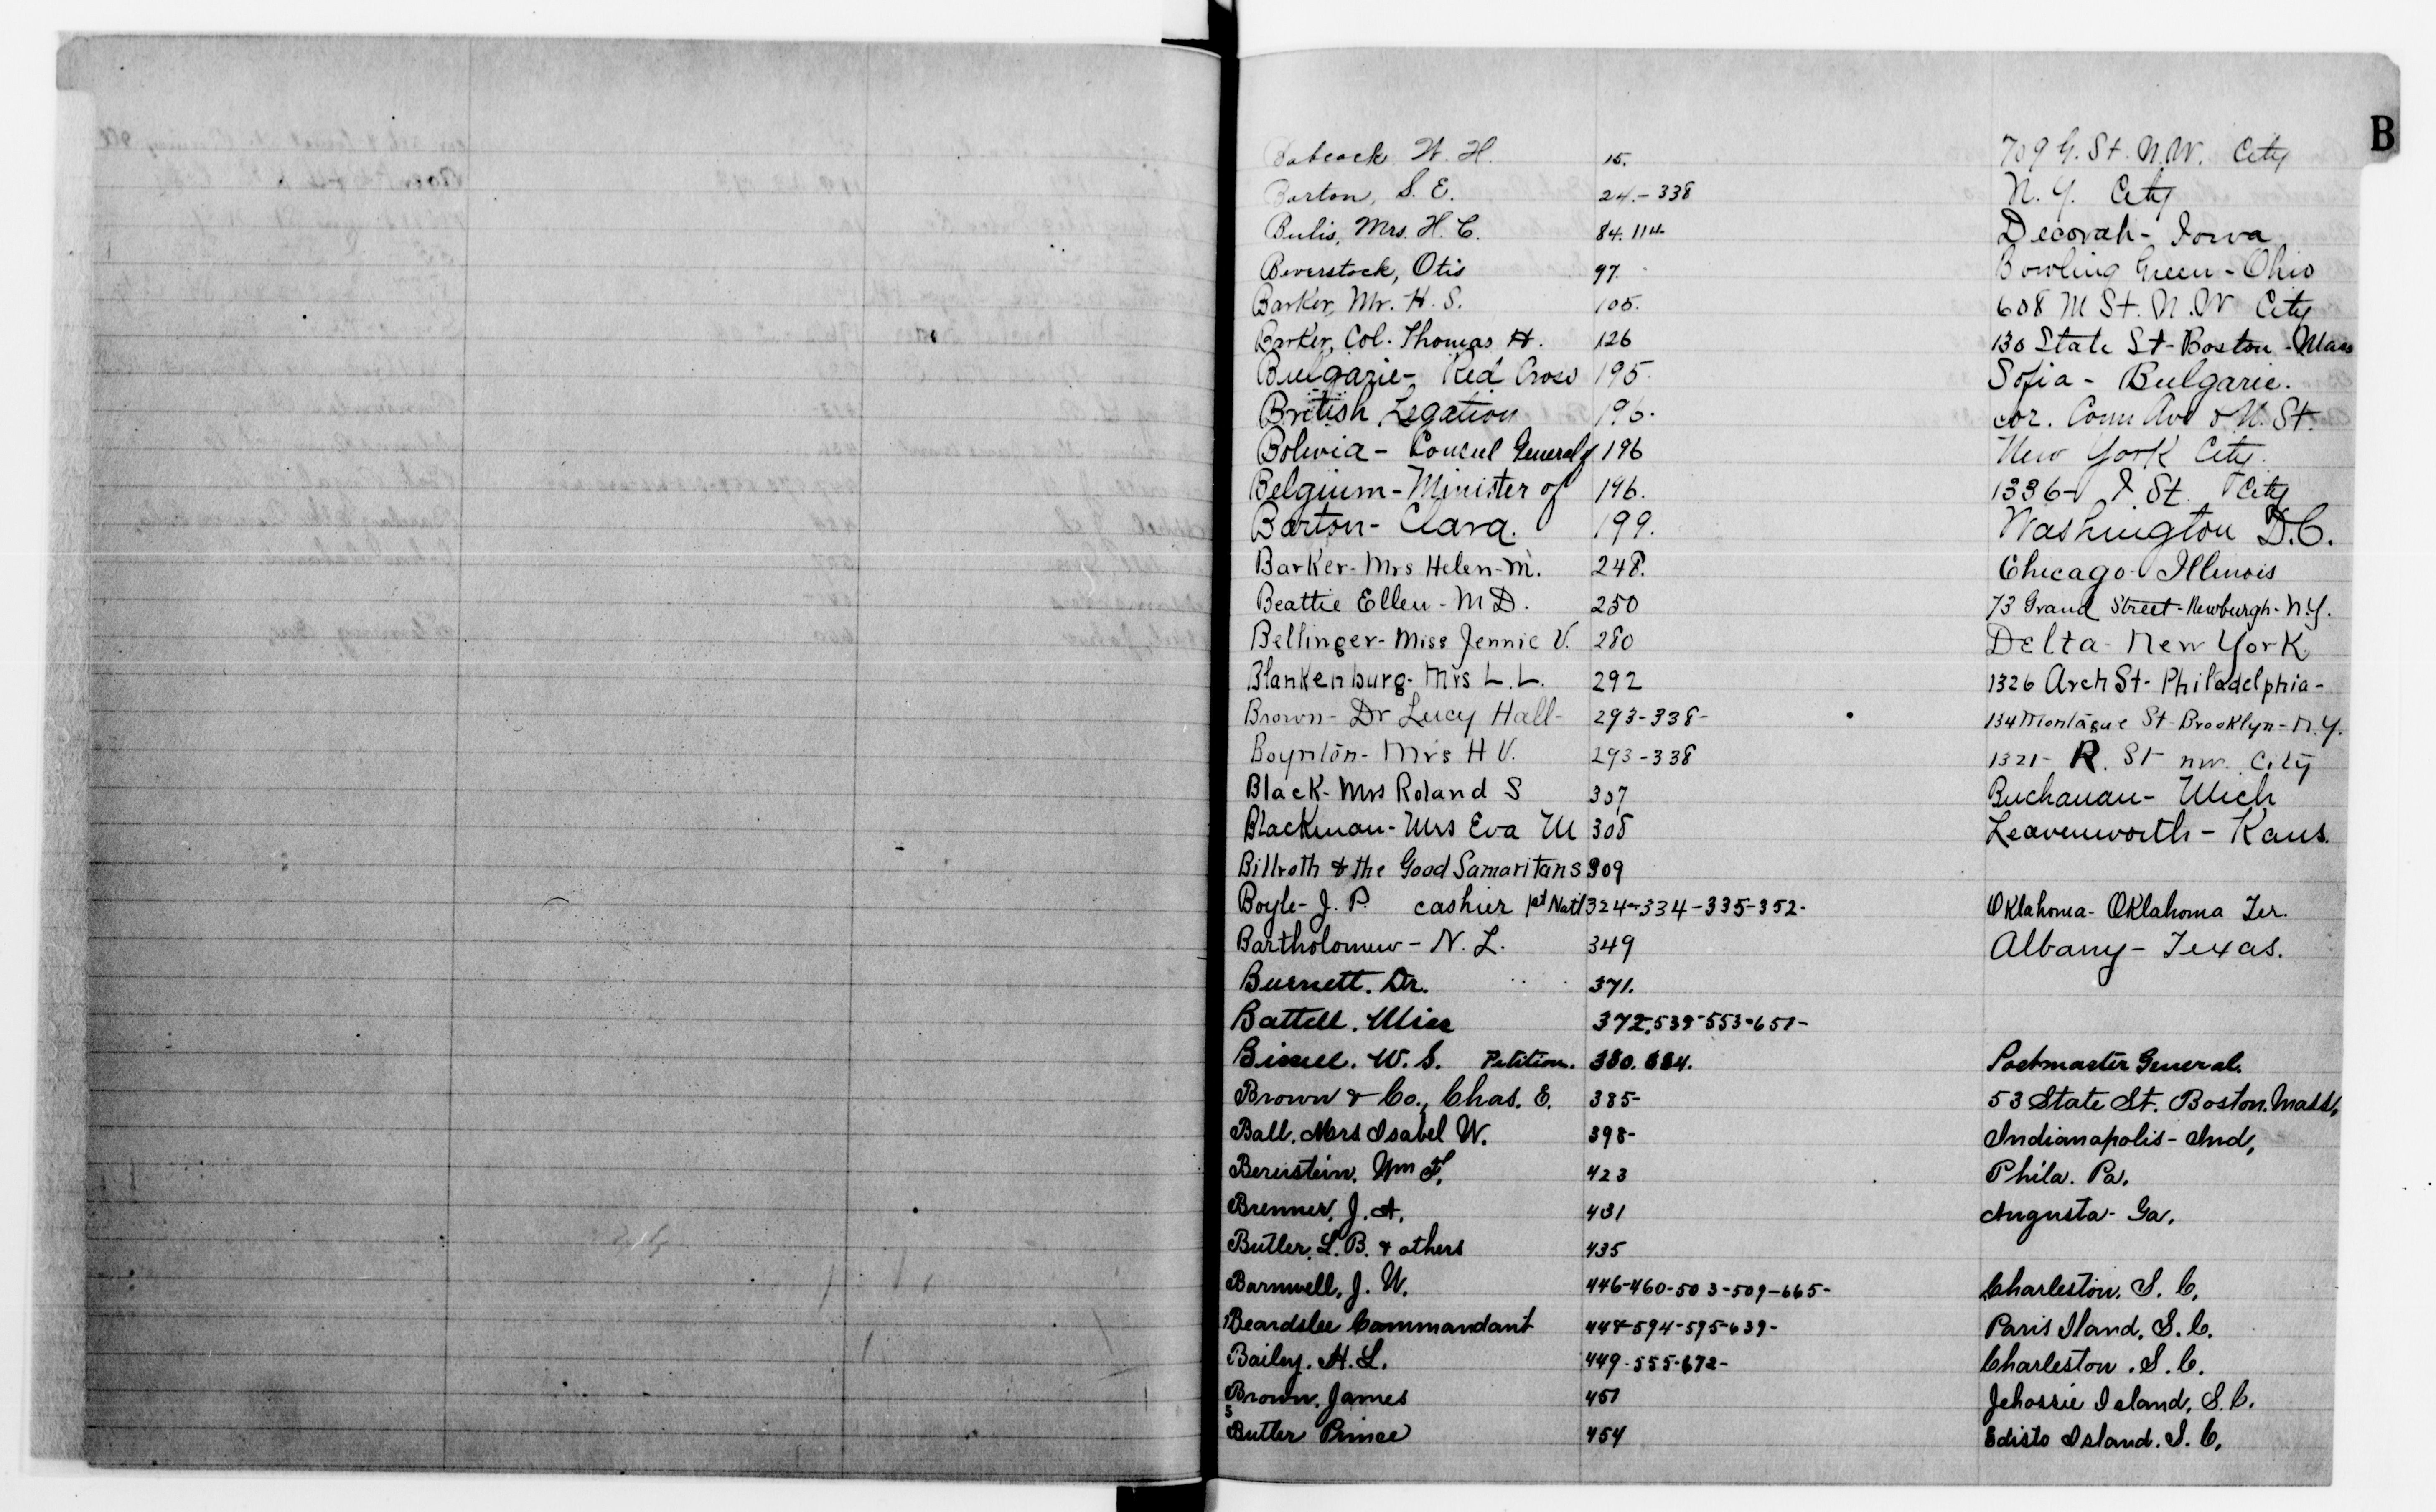 B
Babcock W. H. 15. 709 G. St. N.W. City
Barton, S. E. 24.-338 N. Y. City
Bulis, Mrs. H. C. 84. 114. Decorah - Iowa
Beverstock, Otis 97. Bowling Green - Ohio
Barker, Mr. H. S. 105. 608 M St. N. W City
Barker, Col. Thomas H. 126 130 State St - Boston - Mass
Bulgarie - Red Cross 195. Sofia - Bulgarie.
British Legation 196. cor. Conn Ave & N. St.
Bolivia - Consul General of 196 New York City.
Belgium - Minister of 196. 1336- I St. City
Barton - Clara. 199. Washington D.C.
Barker - Mrs Helen - M. 248. Chicago - Illinois
Beattie Ellen - M D. 250 73 Grand Street - Newburgh - N.Y.
Bellinger - Miss Jennie V. 280 Delta - New York.
Blankenburg - Mrs L. L. 292 1326 Arch St - Philadelphia -
Brown - Dr Lucy Hall - 293-338- 134 Montague St - Brooklyn - N.Y.
Boynton - Mrs H V. 293-338 1321- R. St nw. City
Black - Mrs Roland S 307 Buchanan - Mich
Blackman - Mrs Eva M 308 Leavenworth - Kans.
Billroth & the Good Samaritans 309
Boyle - J. P. cashier 1st Nat'l 324-334-335-352- Oklahoma - Oklahoma Ter.
Bartholomew - N. L. 349 Albany - Texas.
Burnett. Dr. 371.
Battell. Miss 372.539-553-651-
Bissell. W. S. Petition. 380. 384. Postmaster General.
Brown & Co., Chas. E. 385- 53 State St. Boston. Mass,
Ball. Mrs Isabel W. 398- Indianapolis - Ind,
Bereistein. Wm F. 423 Phila. Pa.
Brenner. J. A. 431 Augusta - Ga.
Butler. L. B. & others 435
Barnwell, J. W. 446-460-503-509-665- Charleston. S. C.
Beardslee Commandant 448-594-595-639- Paris Iland, S. C.
Bailey. H. L. 449-555-672- Charleston. S. C.
Brown. James 451 Jehossie Island, S. C.
Butler Prince 454 Edisto Island. S. C.